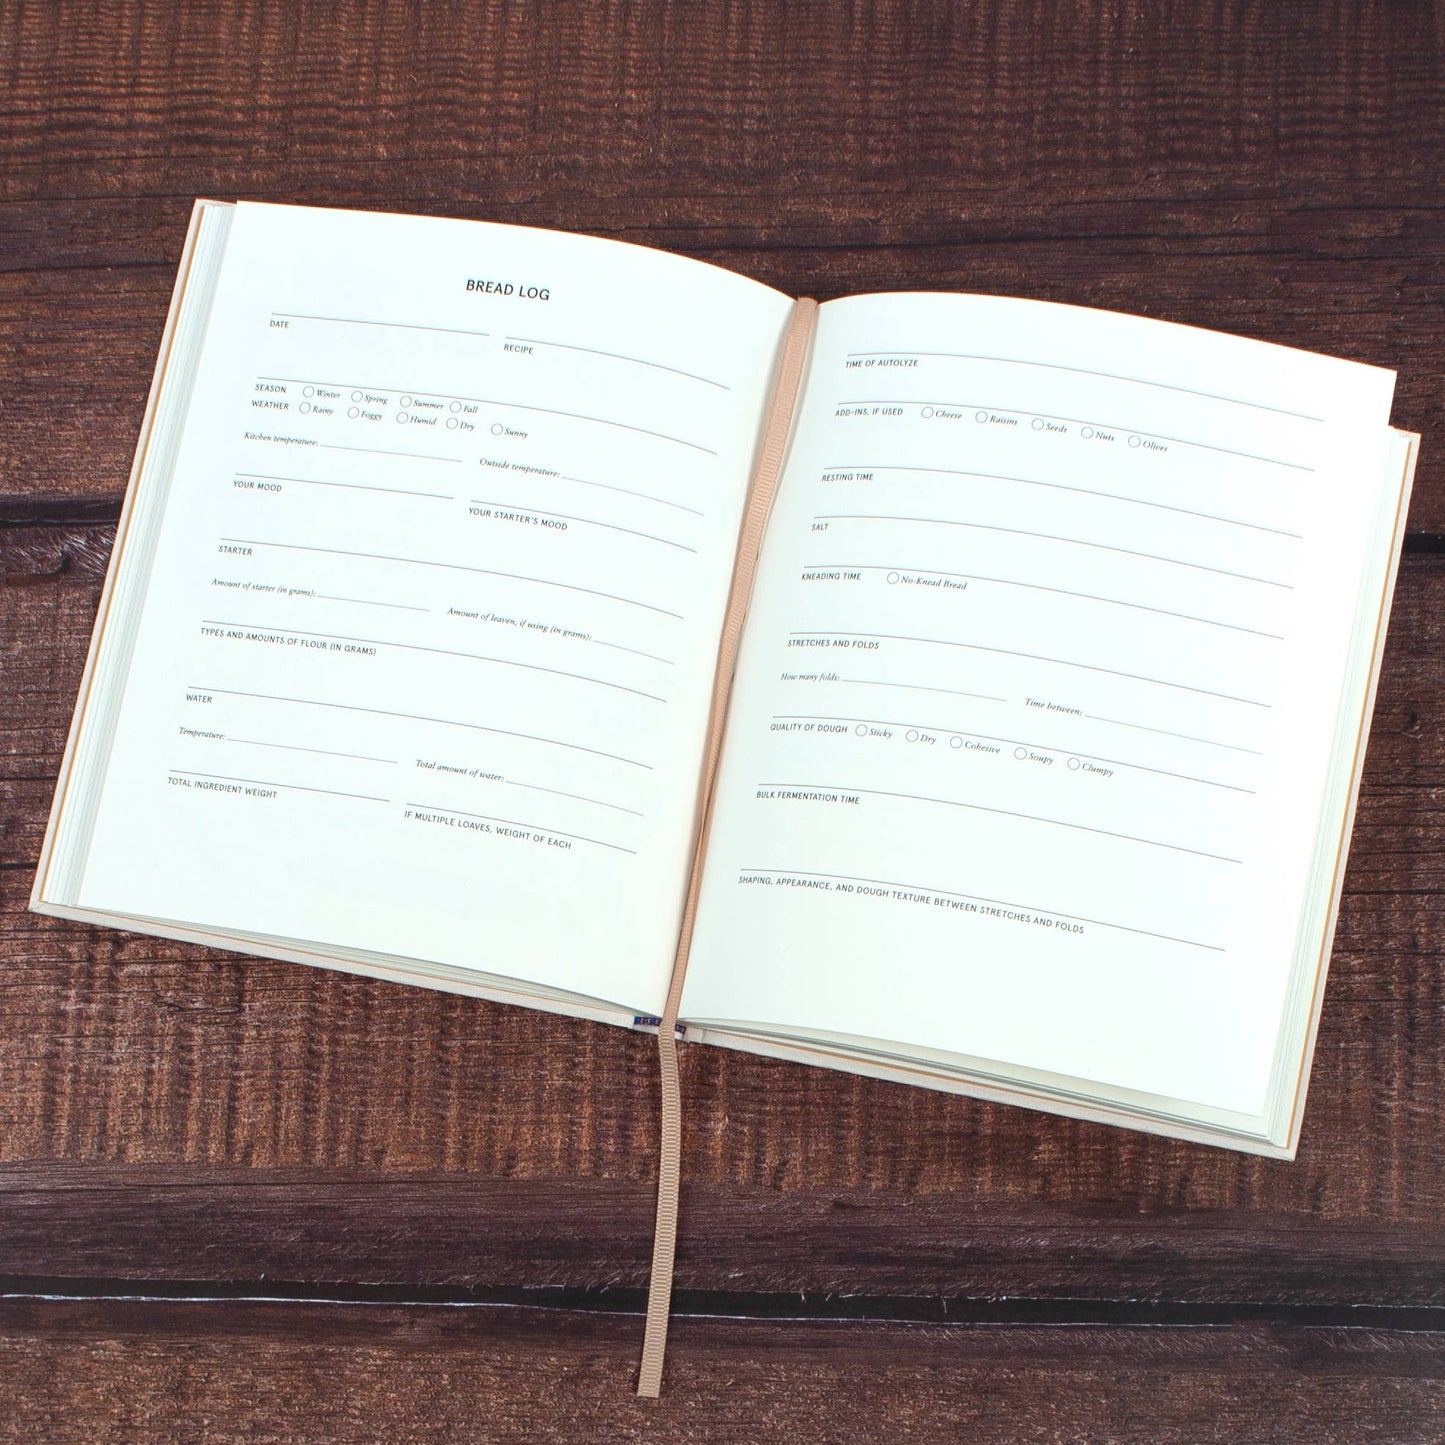 BREAD LOG
DATE
RECIPE
SEASON Winter Spring Summer Fall
WEATHER Rainy Foggy Humid Dry Sunny
Kitchen temperature:
Outside temperature:
YOUR MOOD
YOUR STARTER'S MOOD
STARTER
Amount of starter (in grams):
Amount of leaven, if using (in grams):
TYPES AND AMOUNTS OF FLOUR (IN GRAMS)
WATER
Temperature:
Total amount of water:
TOTAL INGREDIENT WEIGHT
IF MULTIPLE LOAVES, WEIGHT OF EACH
TIME OF AUTOLYZE
ADD-INS, IF USED Cheese Raisins Seeds Nuts Olives
RESTING TIME
SALT
KNEADING TIME No-Knead Bread
STRETCHES AND FOLDS
How many folds:
Time between:
QUALITY OF DOUGH Sticky Dry Cohesive Soupy Clumpy
BULK FERMENTATION TIME
SHAPING, APPEARANCE, AND DOUGH TEXTURE BETWEEN STRETCHES AND FOLDS